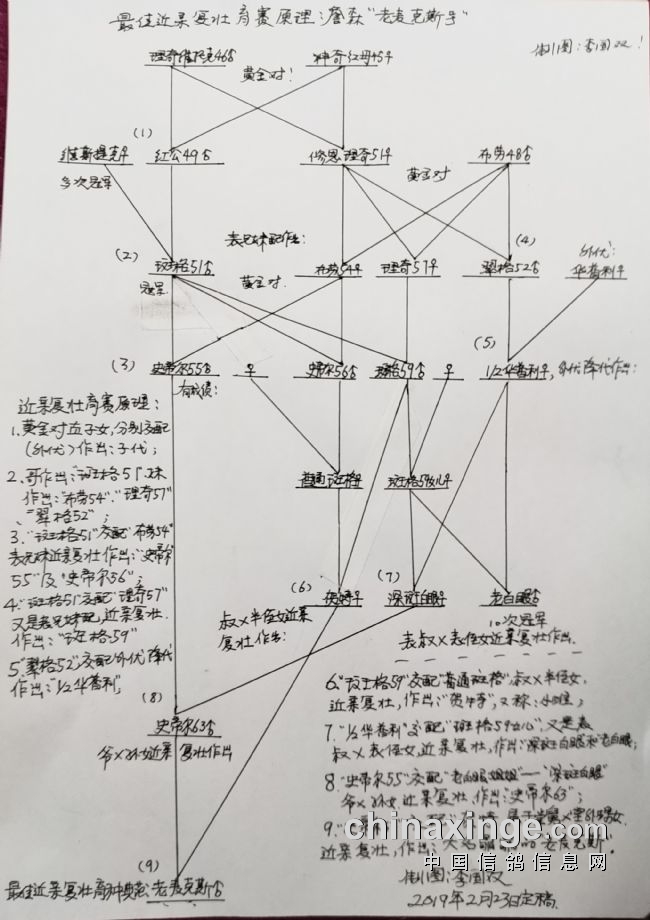 最佳近亲复壮育赛原理：詹森"老麦克斯号"
制图：李国双！
理奇 46♂
神奇红母45♀
黄金对！
(1)
维斯提克♀
红公49♂
理奇51♀
布劳48♂
多次冠军
黄金对
表兄妹配作出：
(2)
斑格51♂
布劳54♀
理奇57♀
(4)
翠格52♂
外优：
华普利♀
冠军
黄金对
(3)
史帝尔55♂
♀
史帝尔56♂
斑格59♂
♀
(5)
1/2华普利♀，外优降代作出：
有成绩：
近亲复壮育赛原理：
1、黄金对血子女，分别交配
(外优)作出：子代；
普通斑格♀
斑格59女儿♀
2、哥作出："斑格51"、妹
作出："布劳54"、"理奇57"
、"翠格52"；
3、"斑格51"交配"布劳54"
表兄妹近亲复壮作出："史帝尔
55"及"史帝尔56"；
4、"斑格51"交配"理奇57"
又是表兄妹配，近亲复壮
作出："斑格59"
5、"翠格52"，交配外优"降代
作出："1/2华普利"，
(6)
(7)
深斑白眼♀
老白眼♂
叔X半侄女近亲
复壮作出：
10次冠军
表叔X表侄女近亲复壮作出
(8)
史帝尔63♂
爷X孙女近亲复壮作出
6、"斑格59"交配"普通斑格"，叔X半侄女，
近亲复壮，作出："贺姆号"，又称：
7、"1/2华普利"交配"斑格59女儿"，又是表
叔X表侄女，近亲复壮，作出"深斑白眼和"老白眼；
8、"史帝尔55"交配"老白眼姐姐"—"深斑白眼"
爷X孙女，近亲复壮，作出："史帝尔63"；
9、
近亲复壮，作出：大名鼎鼎的老麦克斯.
chinaxinge.com
中国信鸽信息网
(9)
最佳近亲复壮育种典范：老麦克斯♂
制图：李国双
2019年2月23日定稿.